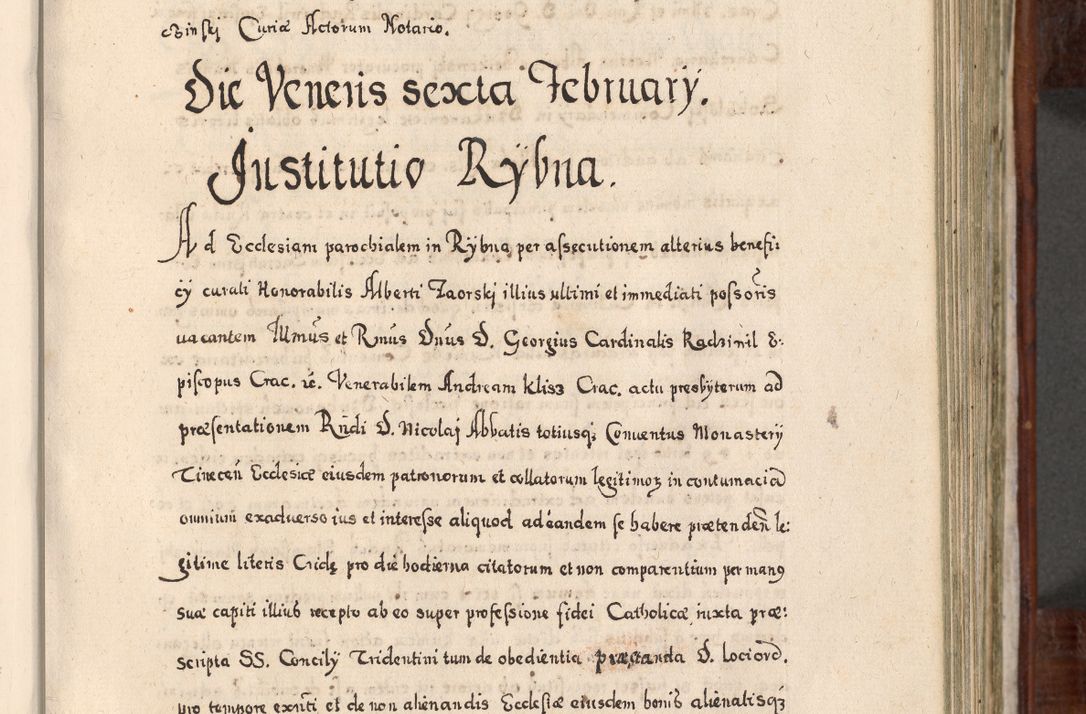 Curiæ Actorum Notario.
Die Veneris sexta February.
Institutio Rÿbna.
Ad Ecclesiam parochialem in Rÿbna per assecutionem alterius benefi:
cÿ curati Honorabilis Alberti Zaorskj illius ultimi et immediati possoris
vacantem Illmus et Rmus Dnus D. Georgius Cardinalis Radziwil E-
piscopus Crac. Venerabilem Andream Klisz Crac. actu presbÿterum ad
præsentationem Rndi D. Nicolaj Abbatis totiusq; Conventus Monasterÿ
Tinecen Ecclesiæ eiusdem patronorum et collatorum legitimoꝝ in contumacia
omnium exadverso ius et interesse aliquod ad eandem se habere prætenden le:
gitime literis Cridę pro die hodierna citatorum et non comparentium per manꝰ
suæ capiti illius recepto ab eo super professione fidei Catholicæ iuxta præ:
scripta SS. Concilÿ Tridentini tum de obedientia præstanda D. lociord.
pro tempore exnti et de non alienandis Ecclesiæ eiusdem bonis alienatisqꝫ